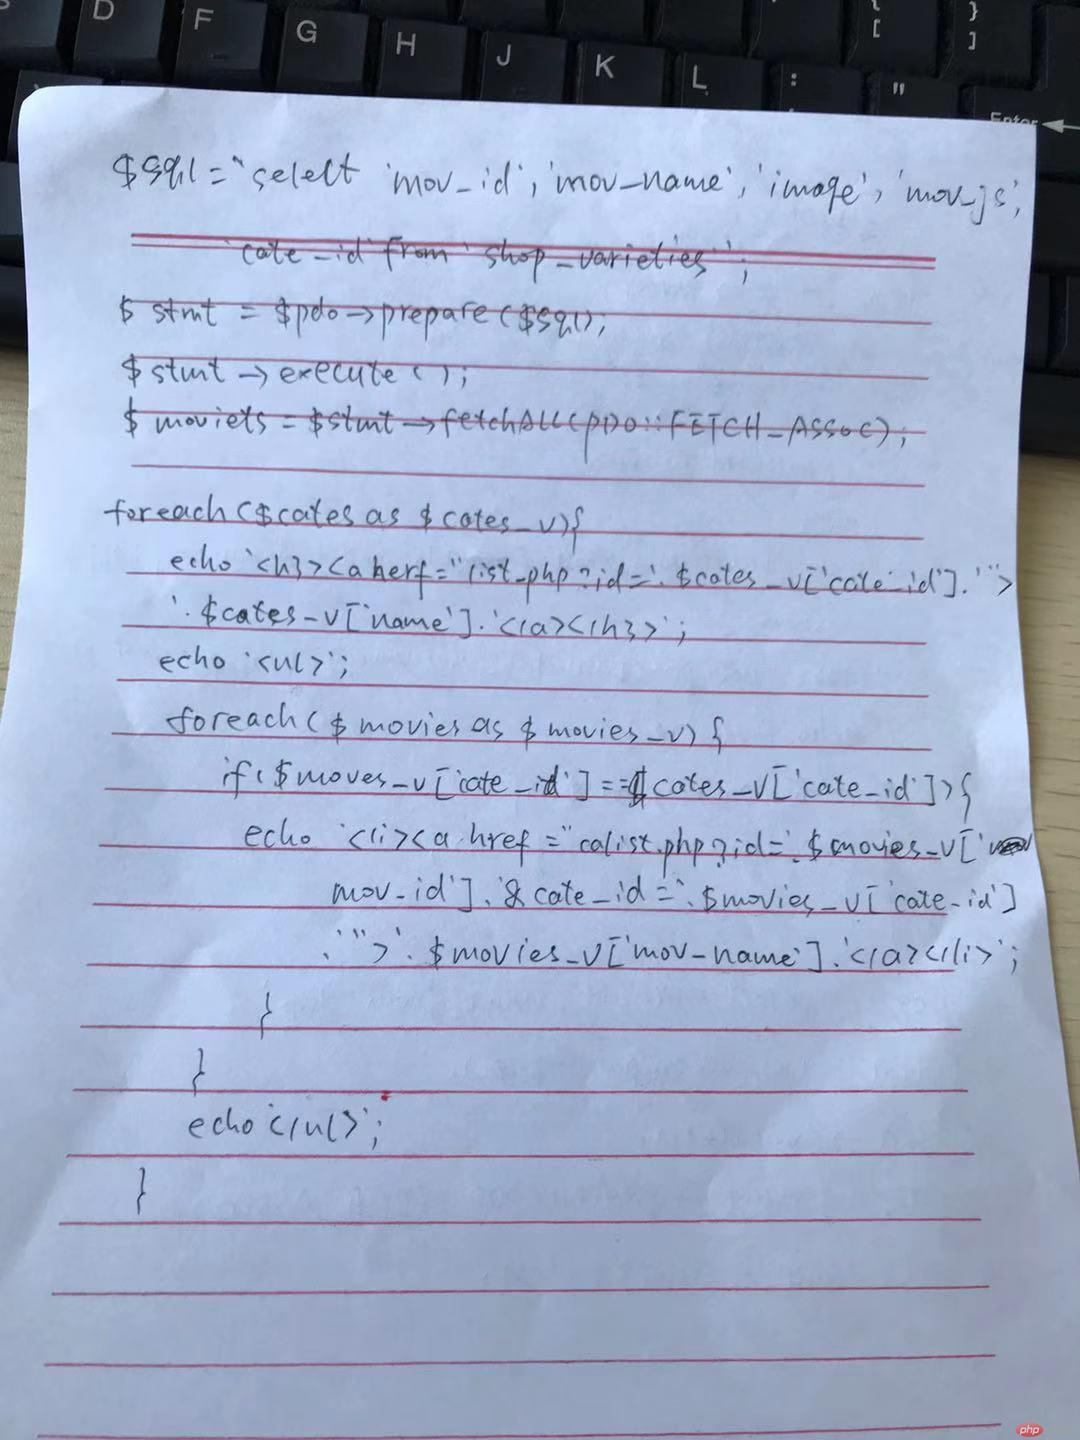 D F G H J K L : " { [ } ] Enter
$sql = "select 'mov_id', 'mov_name', 'image', 'mov_js',
'cate_id' from 'shop_varieties'";
$stmt = $pdo->prepare($sql);
$stmt->execute();
$moviets = $stmt->fetchALL(PDO::FETCH_ASSOC);
foreach($cates as $cates_v){
echo '<h3><a herf="list_php?id='.$cates_v['cate_id'].'">
'.$cates_v['name'].'</a></h3>';
echo '<ul>';
foreach($movies as $movies_v){
if($moves_v['cate_id']==$cates_v['cate_id']){
echo '<li><a href="calist.php?id='.$movies_v['
mov_id'].'&cate_id='.$movies_v['cate_id']
.'">'.$movies_v['mov_name'].'</a></li>';
}
}
echo '</ul>';
}
php